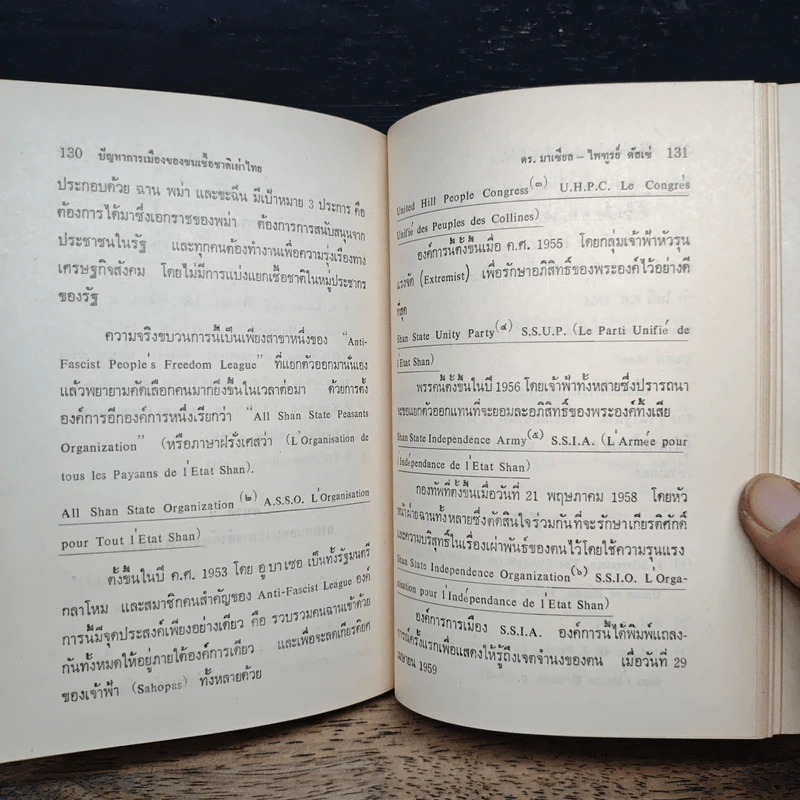 130 ปัญหาการเมืองของชนเชื้อชาติเผ่าไทย
ประกอบด้วย ฉาน พม่า และขะฉิ่น มีเป้าหมาย 3 ประการ คือ
ต้องการได้มาซึ่งเอกราชของพม่า ต้องการการสนับสนุนจาก
ประชาชนในรัฐ และทุกคนต้องทำงานเพื่อความรุ่งเรืองทาง
เศรษฐกิจสังคม โดยไม่มีการแบ่งแยกเชื้อชาติในหมู่ประชากร
ของรัฐ
ความจริงขบวนการนี้เป็นเพียงสาขาหนึ่งของ "Anti-
Fascist People's Freedom League" ที่แยกตัวออกมานั่นเอง
แล้วพยายามคัดเลือกคนมากยิ่งขึ้นในเวลาต่อมา ด้วยการตั้ง
องค์การอีกองค์การหนึ่งเรียกว่า "All Shan State Peasants
Organization" (หรือภาษาฝรั่งเศสว่า (L'Organisation de
tous les Paysans de l'Etat Shan).
All Shan State Organization (๒) A.S.S.O. L'Organisation
pour Tout l'Etat Shan)
ตั้งขึ้นในปี ค.ศ. 1953 โดย อู บาเซอ เป็นทั้งรัฐมนตรี
กลาโหม และสมาชิกคนสำคัญของ Anti-Fascist League องค์
การนี้มีจุดประสงค์เพียงอย่างเดียว คือ รวบรวมคนฉานเข้าด้วย
กันทั้งหมดให้อยู่ภายใต้องค์การเดียว และเพื่อจะลดเกียรติยศ
ของเจ้าฟ้า (Sahopas) ทั้งหลายด้วย
ดร. มาเซียล – ไพฑูรย์ ดัสเช่ 131
United Hill People Congress(๓) U.H.P.C. Le Congrés
Unifié des Peuples des Collines)
องค์การนี้ตั้งขึ้นเมื่อ ค.ศ. 1955 โดยกลุ่มเจ้าฟ้าหัวรุน
แรงจัด (Extremist) เพื่อรักษาอภิสิทธิ์ของพระองค์ไว้อย่างดี
ที่สุด
Shan State Unity Party(๔) S.S.U.P. (Le Parti Unifié de
l'Etat Shan)
พรรคนี้ตั้งขึ้นในปี 1956 โดยเจ้าฟ้าทั้งหลายซึ่งปรารถนา
จะแยกตัวออกแทนที่จะยอมละอภิสิทธิ์ของพระองค์ทั้งเสีย
Shan State Independence Army(๕) S.S.I.A. (L'Armée pour
l'Indépendance de l'Etat Shan)
กองทัพที่ตั้งขึ้นเมื่อวันที่ 21 พฤษภาคม 1958 โดยหัว
หน้าฝ่ายฉานทั้งหลายซึ่งตัดสินใจร่วมกันที่จะรักษาเกียรติศักดิ์
และความบริสุทธิ์ในเรื่องเผ่าพันธ์ของตนไว้โดยใช้ความรุนแรง
Shan State Independence Organization(๖) S.S.I.O. L'Orga-
nisation pour l'Indépendance de l'Etat Shan)
องค์การการเมือง S.S.I.A. องค์การนี้ได้พิมพ์แถลง-
การณ์ครั้งแรกเพื่อแสดงให้รู้ถึงเจตจำนงของตน เมื่อวันที่ 29
เมษายน 1959